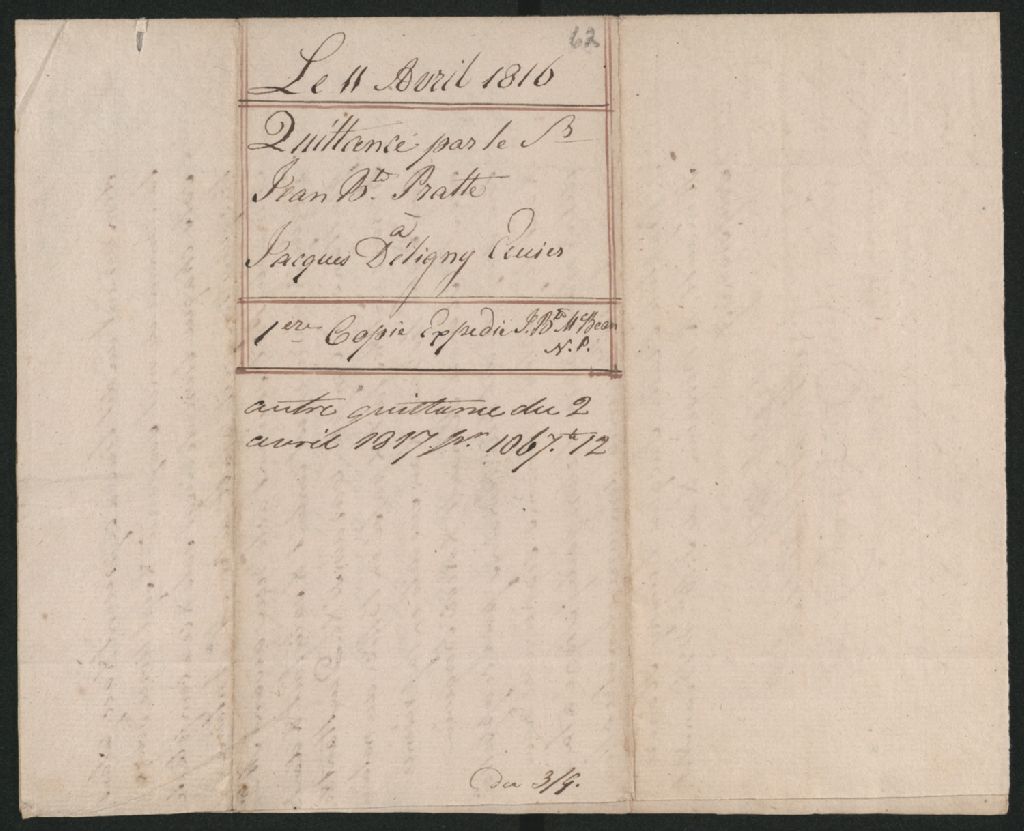 62
Le 11 Avril 1816
Quittance par le Sr
Jean Bte. Pratte
à
Jacques Déligny Ecuier
1ere Copie Expediée J. Bte McBean
N. P.
autre quittance du 2
avril 1817. pr. 1067.tt 12
Du 3/9.